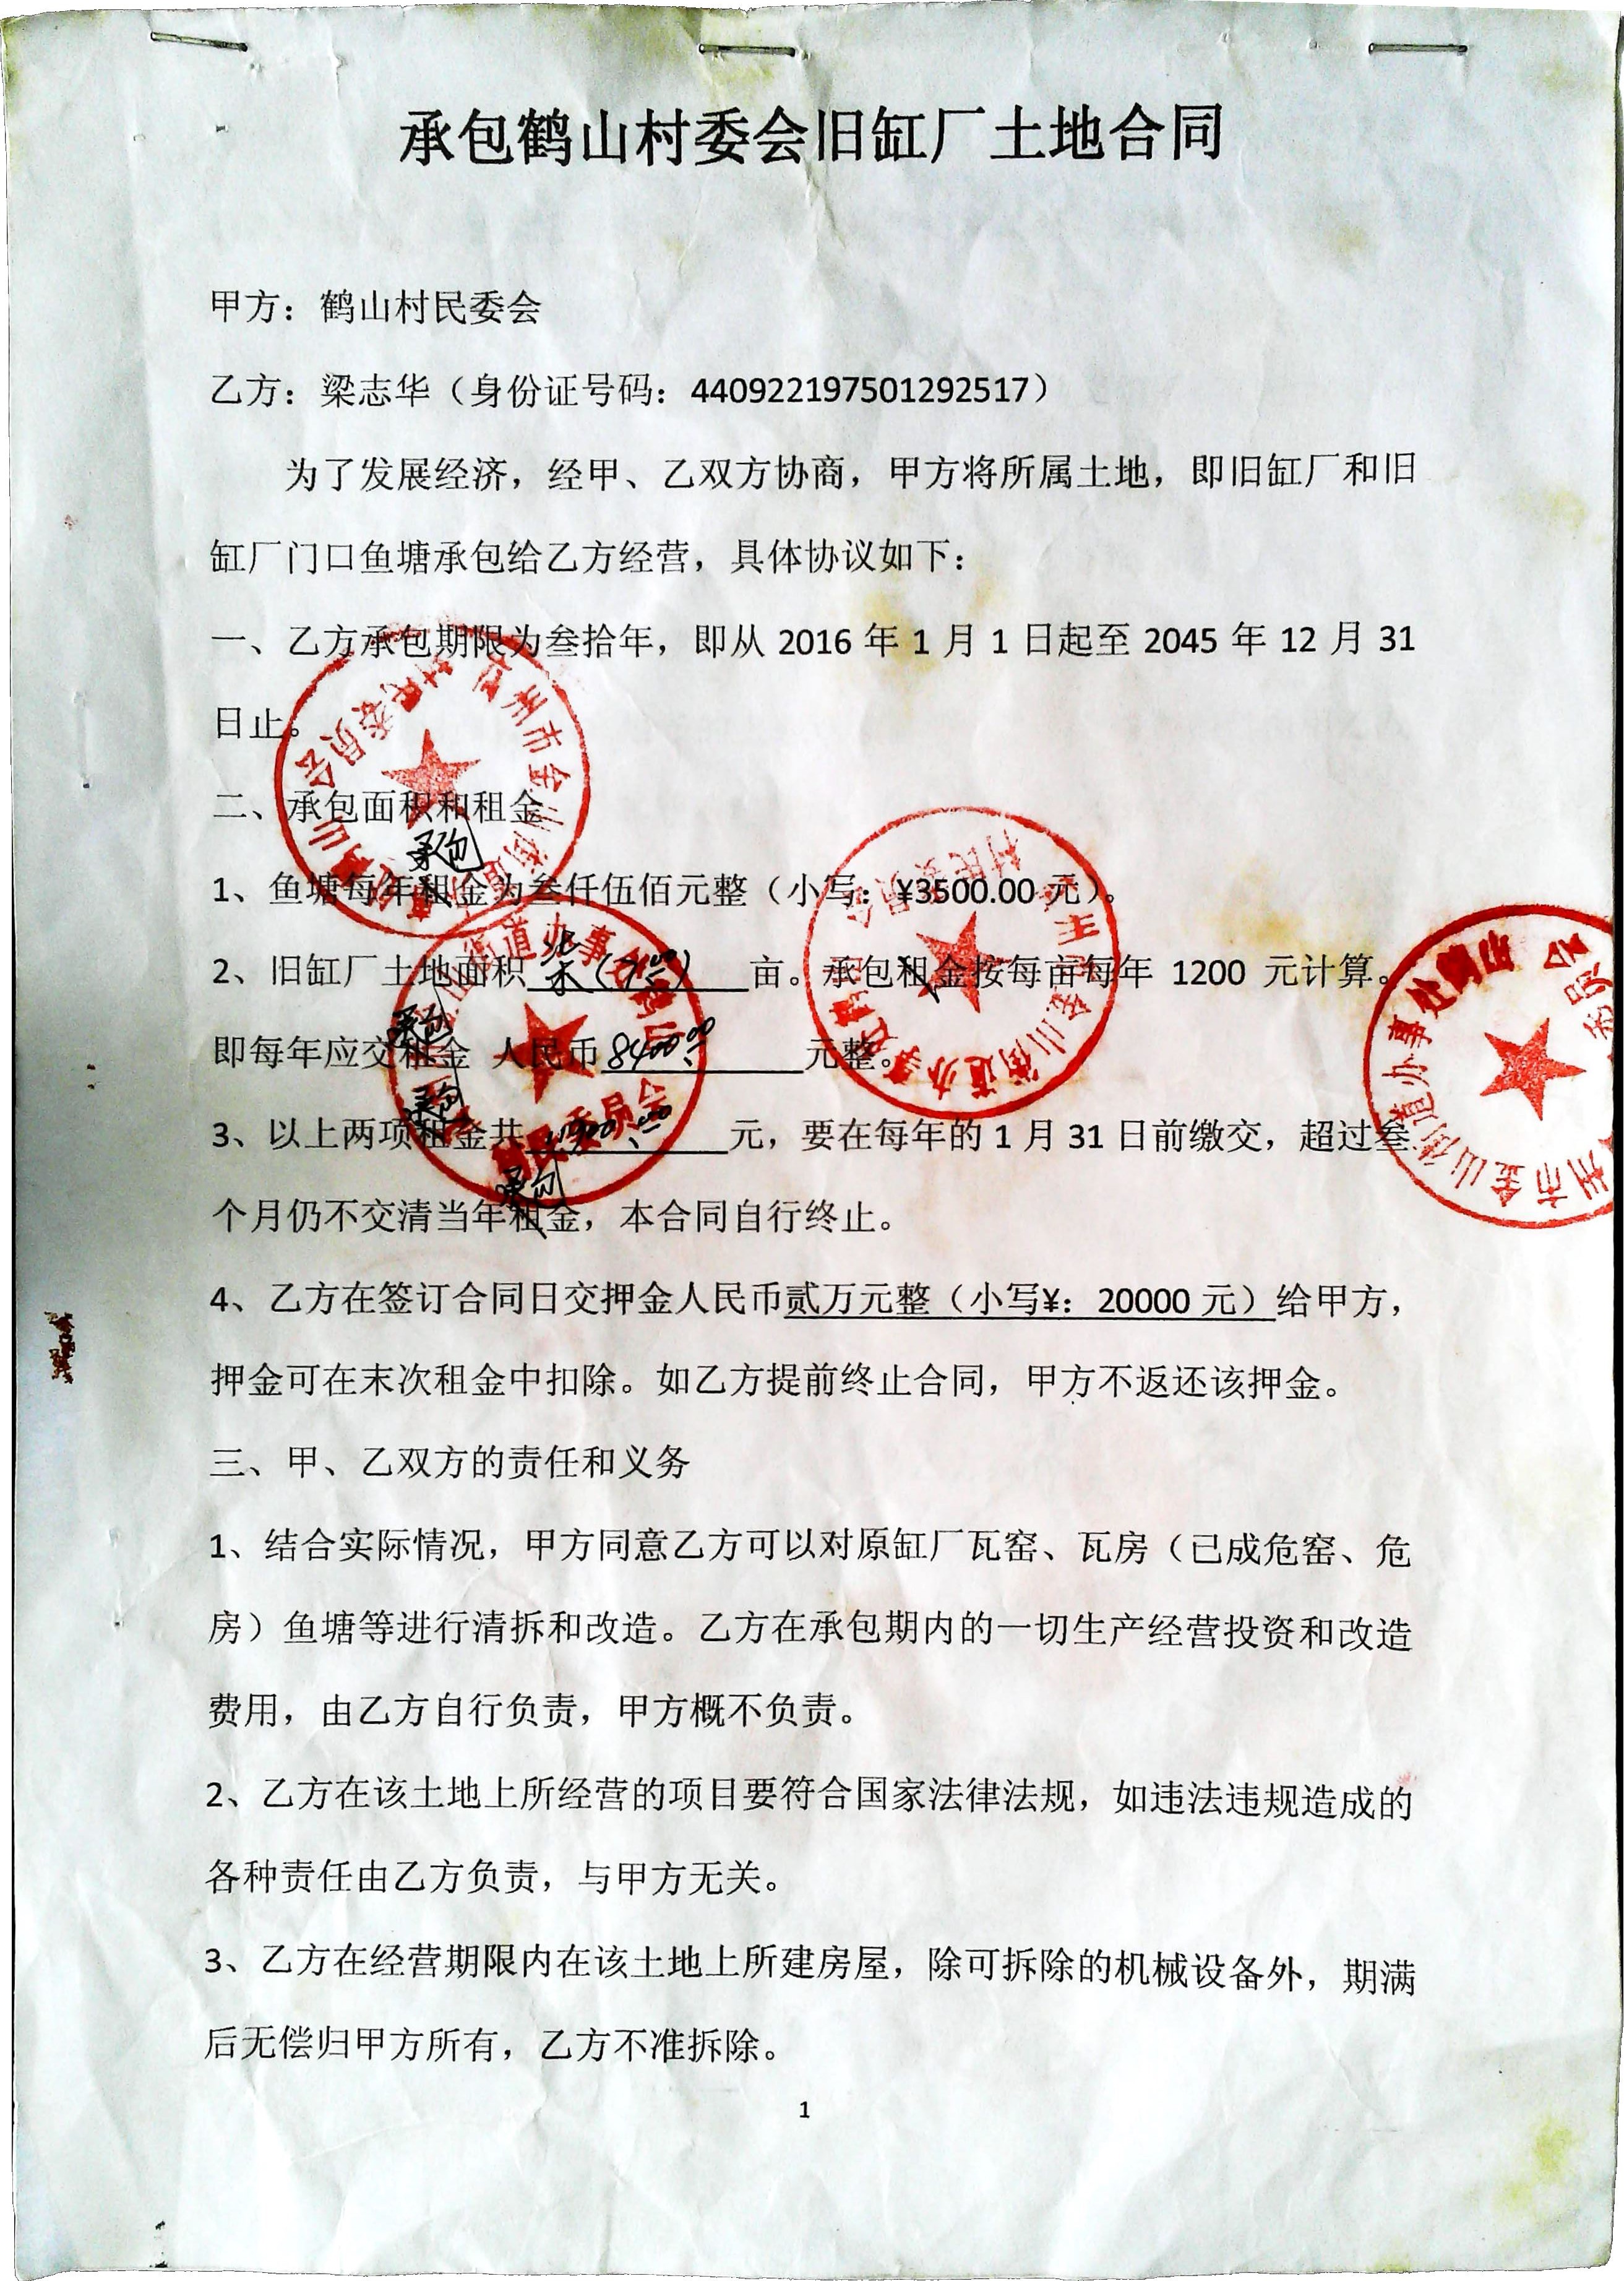 承包鹤山村委会旧缸厂土地合同
甲方：鹤山村民委会
乙方：梁志华（身份证号码：440922197501292517）
为了发展经济，经甲、乙双方协商，甲方将所属土地，即旧缸厂和旧
缸厂门口鱼塘承包给乙方经营，具体协议如下：
一、乙方承包期限为叁拾年，即从 2016 年 1 月 1 日起至 2045 年 12 月 31
日止。
二、承包面积和租金
承包
1、鱼塘每年租金为叁仟伍佰元整（小写：¥3500.00 元）。
2、旧缸厂土地面积 柒（7.00） 亩。承包租金按每亩每年 1200 元计算。
承包
即每年应交租金 人民币 8400.00 元整。
承包
3、以上两项租金共 11900.00 元，要在每年的 1 月 31 日前缴交，超过叁
承包
个月仍不交清当年租金，本合同自行终止。
4、乙方在签订合同日交押金人民币贰万元整（小写¥：20000 元）给甲方，
押金可在末次租金中扣除。如乙方提前终止合同，甲方不返还该押金。
三、甲、乙双方的责任和义务
1、结合实际情况，甲方同意乙方可以对原缸厂瓦窑、瓦房（已成危窑、危
房）鱼塘等进行清拆和改造。乙方在承包期内的一切生产经营投资和改造
费用，由乙方自行负责，甲方概不负责。
2、乙方在该土地上所经营的项目要符合国家法律法规，如违法违规造成的
各种责任由乙方负责，与甲方无关。
3、乙方在经营期限内在该土地上所建房屋，除可拆除的机械设备外，期满
后无偿归甲方所有，乙方不准拆除。
1